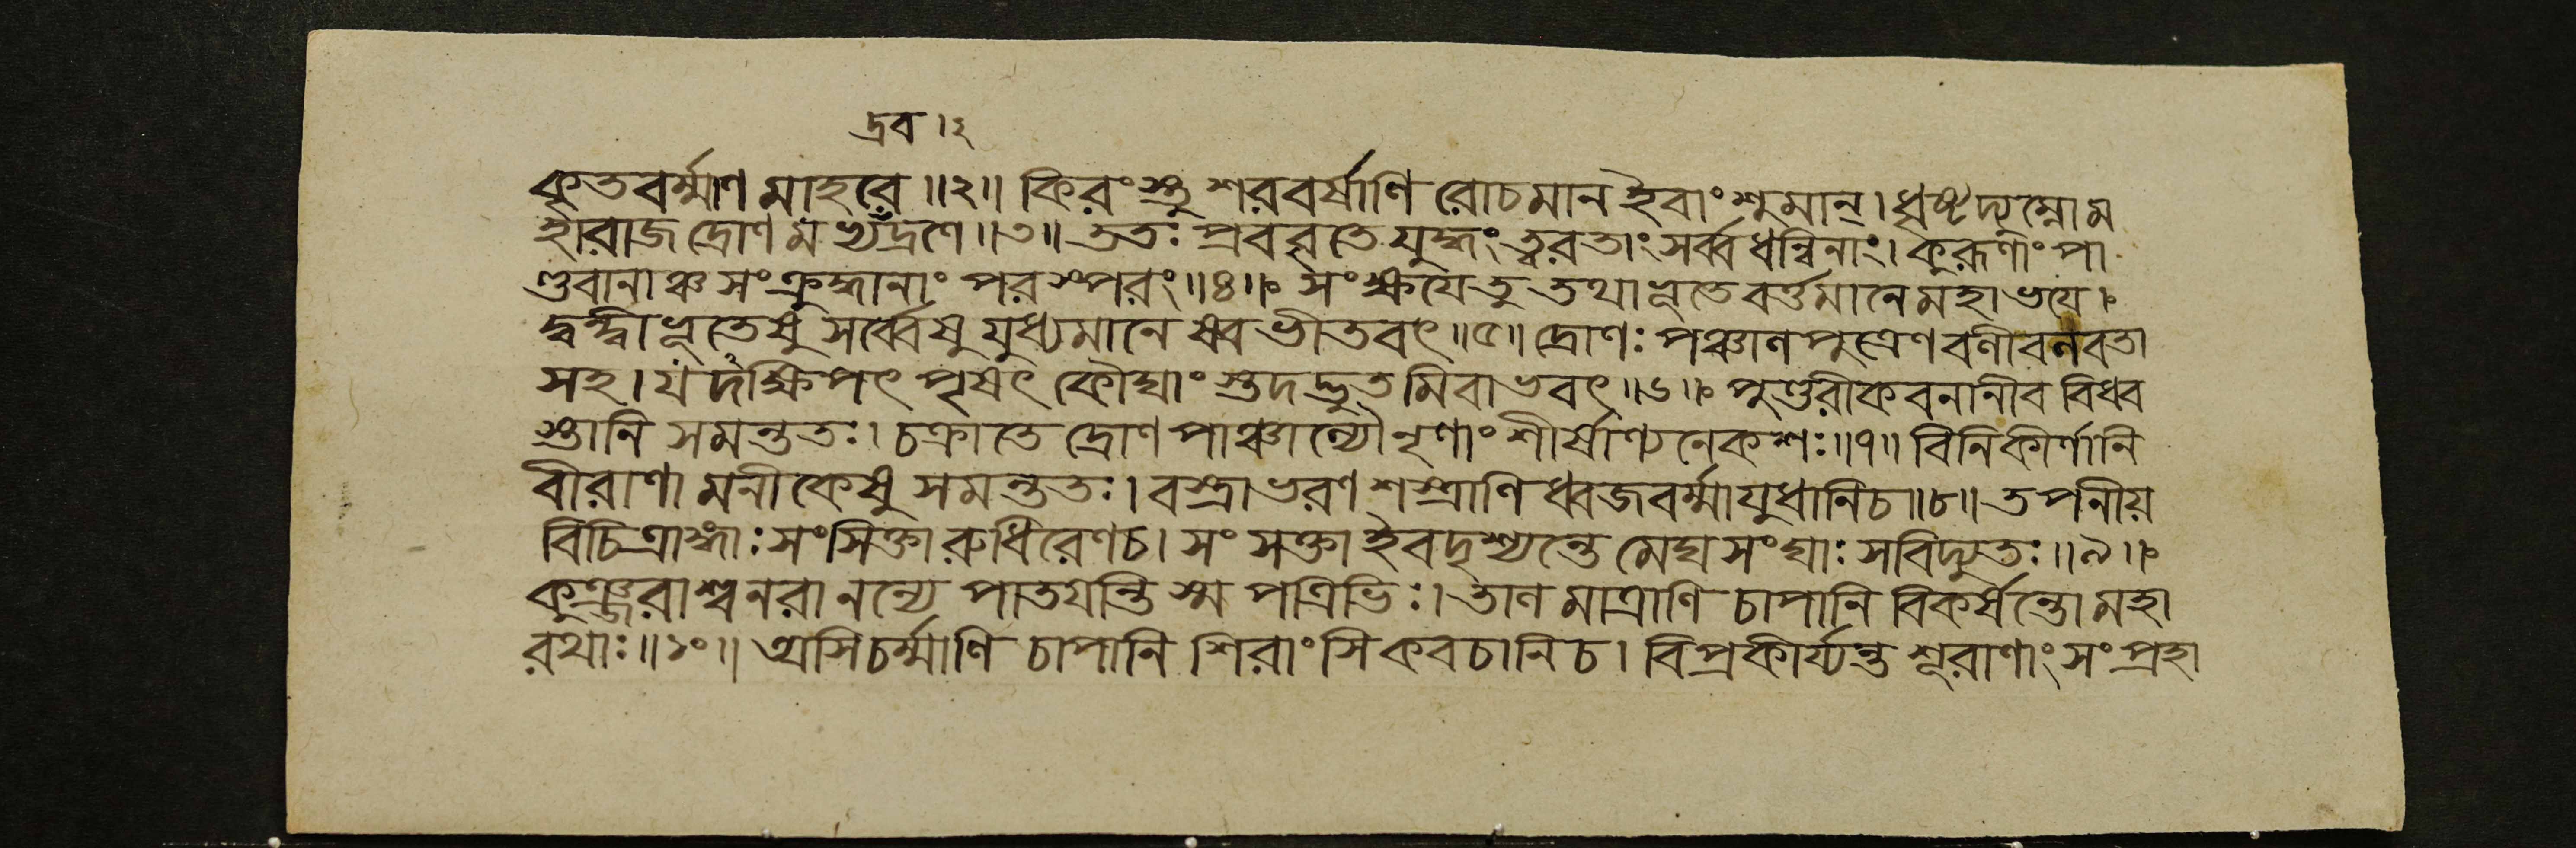 দ্রব ।২
কৃতবর্ম্মাণ মাহবে ॥২॥ কিরংস্তু শরবর্ষাণি রোচমান ইবাংশুমান্ । ধৃষ্টদ্যুম্নো ম
হারাজ দ্রোণ মভ্যদ্রণে ॥৩॥ ততঃ প্রববৃতে যুদ্ধং ত্বরতাং সর্ব্বধন্বিনাং । কুরূণাং পা
ণ্ডবানাঞ্চ সংক্রুদ্ধানাং পরস্পরং ॥৪॥ সংক্ষয়ে তু তথা ভূতে বর্ত্তমানে মহাভয়ে ।
দ্বন্দ্বীভূতেষু সর্ব্বেষু যুধ্যমানে ষ্বভীতবৎ ॥৫॥ দ্রোণঃ পঞ্চালপুত্রেণ বলী বলবতা
সহ । যদক্ষিপৎ পৃষৎকৌঘাং স্তদদ্ভুতমিবাভবৎ ॥৬॥ পুণ্ডরীকবনানীব বিধ্ব
স্তানি সমন্ততঃ । চক্রাতে দ্রোণপাঞ্চাল্যৌ নৃণাং শীর্ষাণ্যনেকশঃ ॥৭॥ বিনিকীর্ণানি
বীরাণা মনীকেষু সমন্ততঃ । বস্ত্রাভরণশস্ত্রাণি ধ্বজবর্ম্মায়ুধানিচ ॥৮॥ তপনীয়
বিচিত্রাঙ্গাঃ সংসিক্তা রুধিরেণচ । সংসক্তা ইব দৃশ্যন্তে মেঘসংঘাঃ সবিদ্যুতঃ ॥৯॥
কুঞ্জরাশ্বনরা নন্যে পাতয়ন্তি স্ম পত্রিভিঃ । তালমাত্রাণি চাপানি বিকর্ষন্তো মহা
রথাঃ ॥১০॥ অসিচর্ম্মাণি চাপানি শিরাংসি কবচানিচ । বিপ্রকীর্য্যন্ত শূরাণাং সংপ্রহা